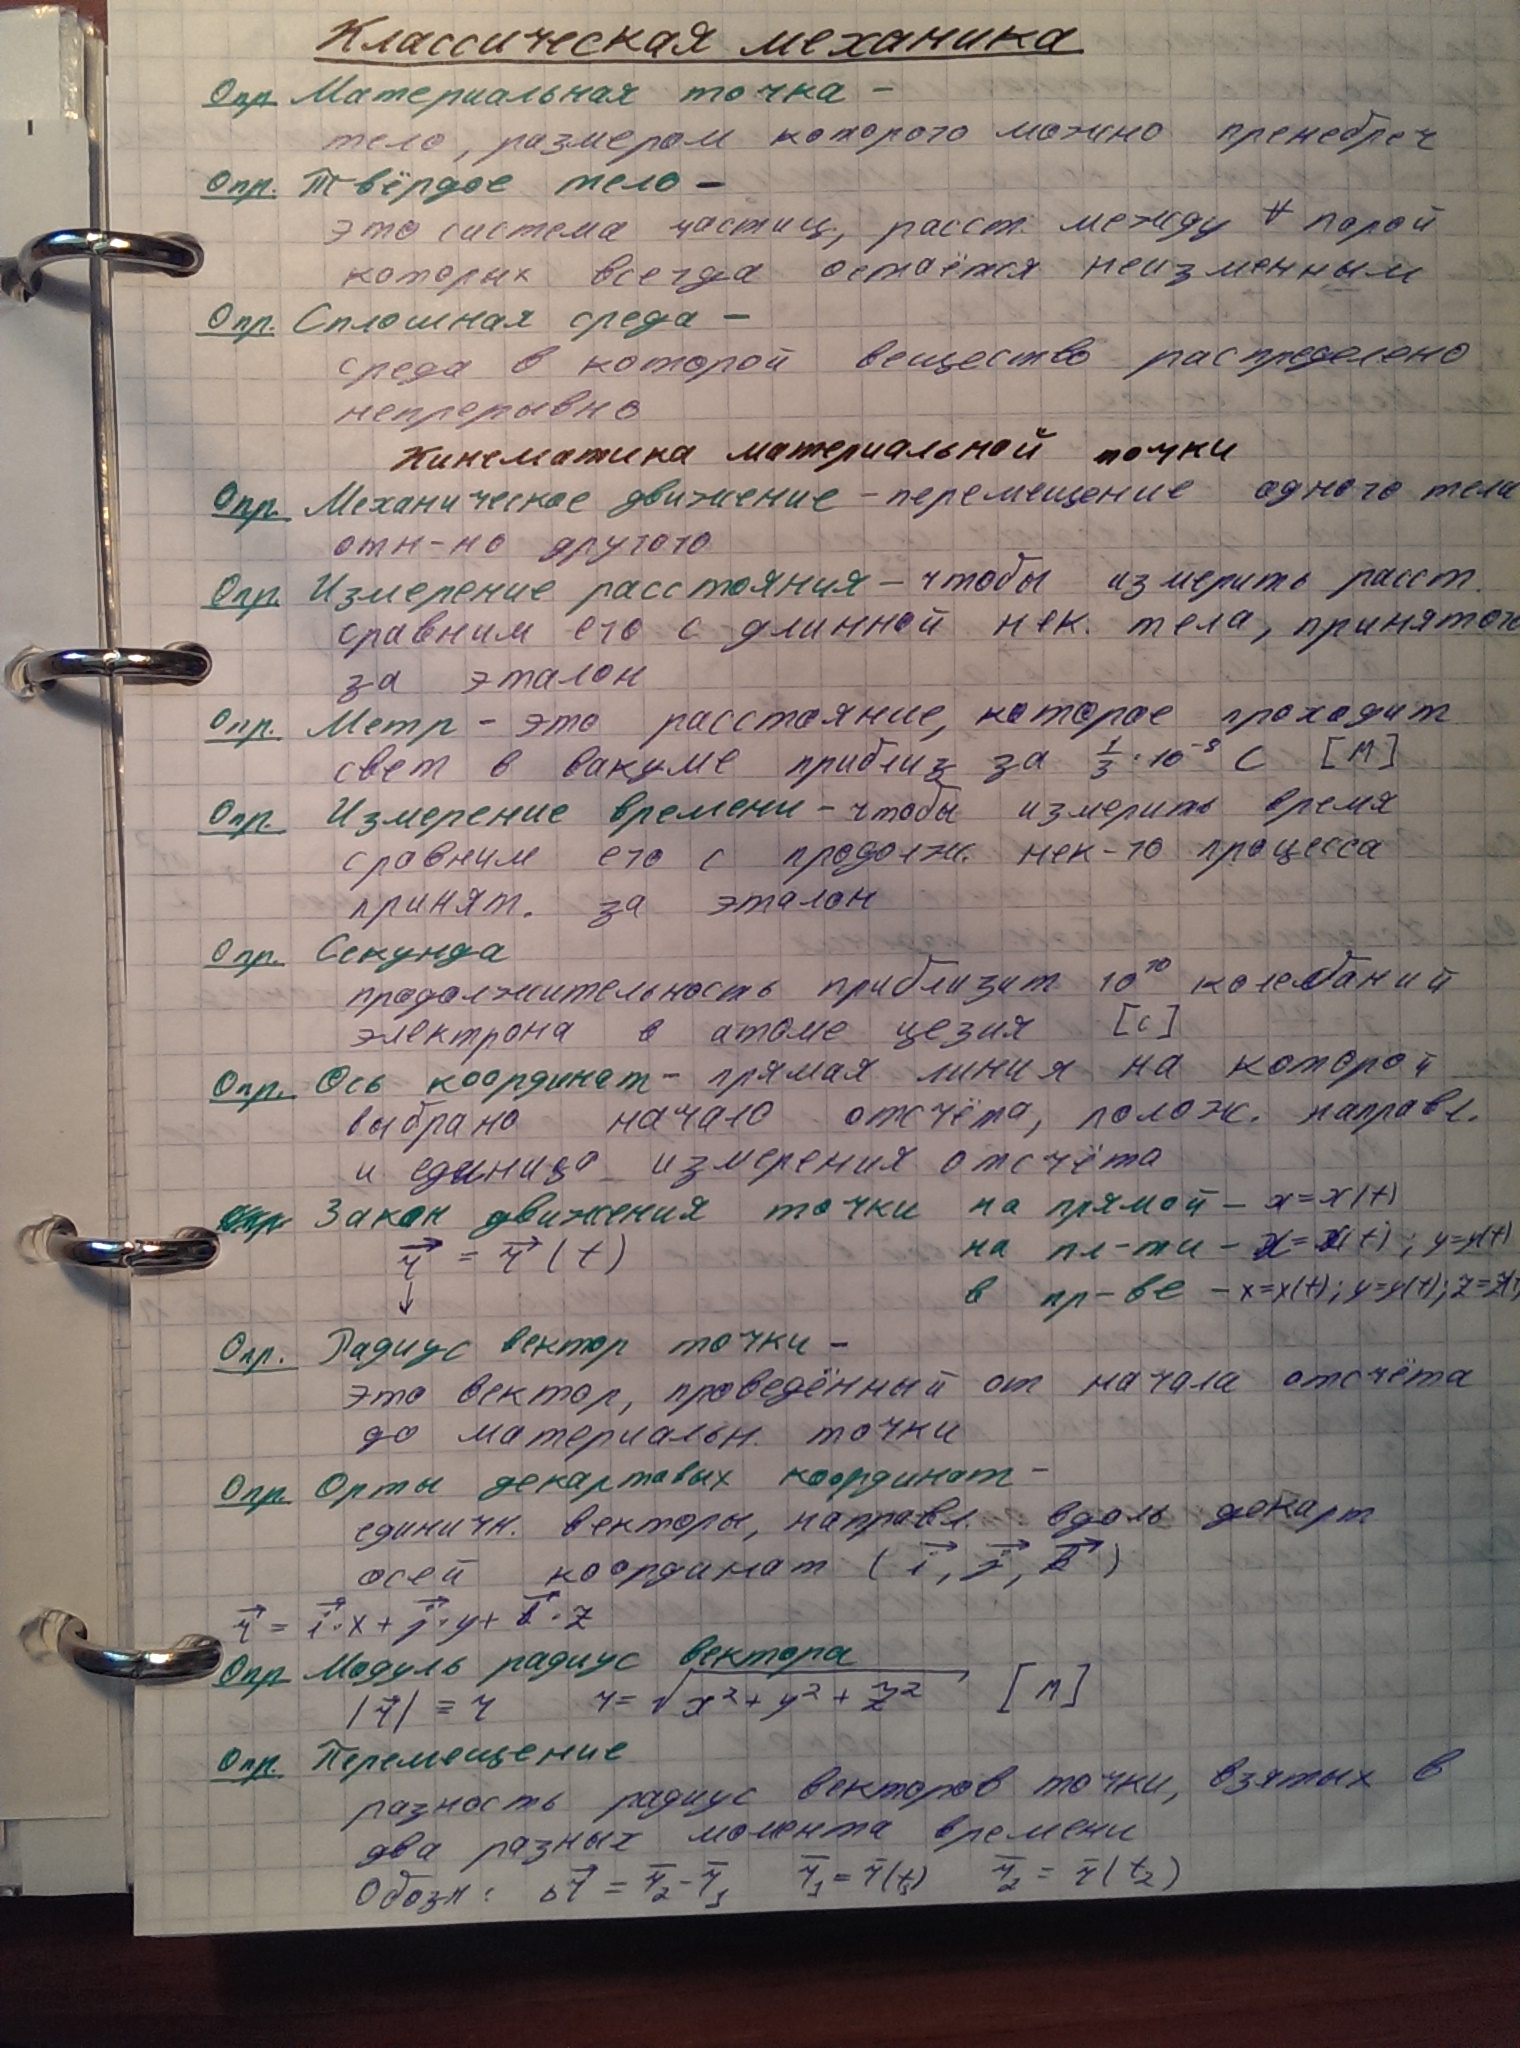 Классическая механика
Опр Материальная точка -
тело, размером которого можно пренебреч
Опр. Твёрдое тело -
это система частиц, расст. между ∀ парой
которых всегда остаётся неизменным
Опр. Сплошная среда -
среда в которой вещество распределено
непрерывно
Кинематика материальной точки
Опр. Механическое движение - перемещение одного тела
отн-но другого
Опр. Измерение расстояния - чтобы измерить расст.
сравним его с длинной нек. тела, принятого
за эталон
Опр. Метр - это расстояние, которое проходит
свет в вакуме приблиз за 1/3 · 10⁻⁸ С [М]
Опр. Измерение времени - чтобы измерить время
сравним его с продолж. нек-го процесса
принят. за эталон
Опр. Секунда
продолжительность приблизит 10¹⁰ колебаний
электрона в атоме цезия [с]
Опр. Ось координат - прямая линия на которой
выбрано начало отсчёта, полож. направл.
и единица измерения отсчёта
Опр. Закон движения точки на прямой - x=x(t)
r⃗ = r⃗(t) на пл-ти - x=x(t); y=y(t)
↓ в пр-ве - x=x(t); y=y(t); z=z(t)
Опр. Радиус вектор точки -
это вектор, проведённый от начала отсчёта
до материальн. точки
Опр. Орты декартовых координат -
единичн. векторы, направл. вдоль декарт
осей координат (i⃗, j⃗, k⃗)
r⃗ = i⃗·x + j⃗·y + k⃗·z
Опр Модуль радиус вектора
|r⃗| = r r = √(x² + y² + z²) [М]
Опр. Перемещение
разность радиус векторов точки, взятых в
два разных момента времени
Обозн: Δr⃗ = r̅₂ - r̅₁ r̅₁ = r̅(t₁) r̅₂ = r̅(t₂)